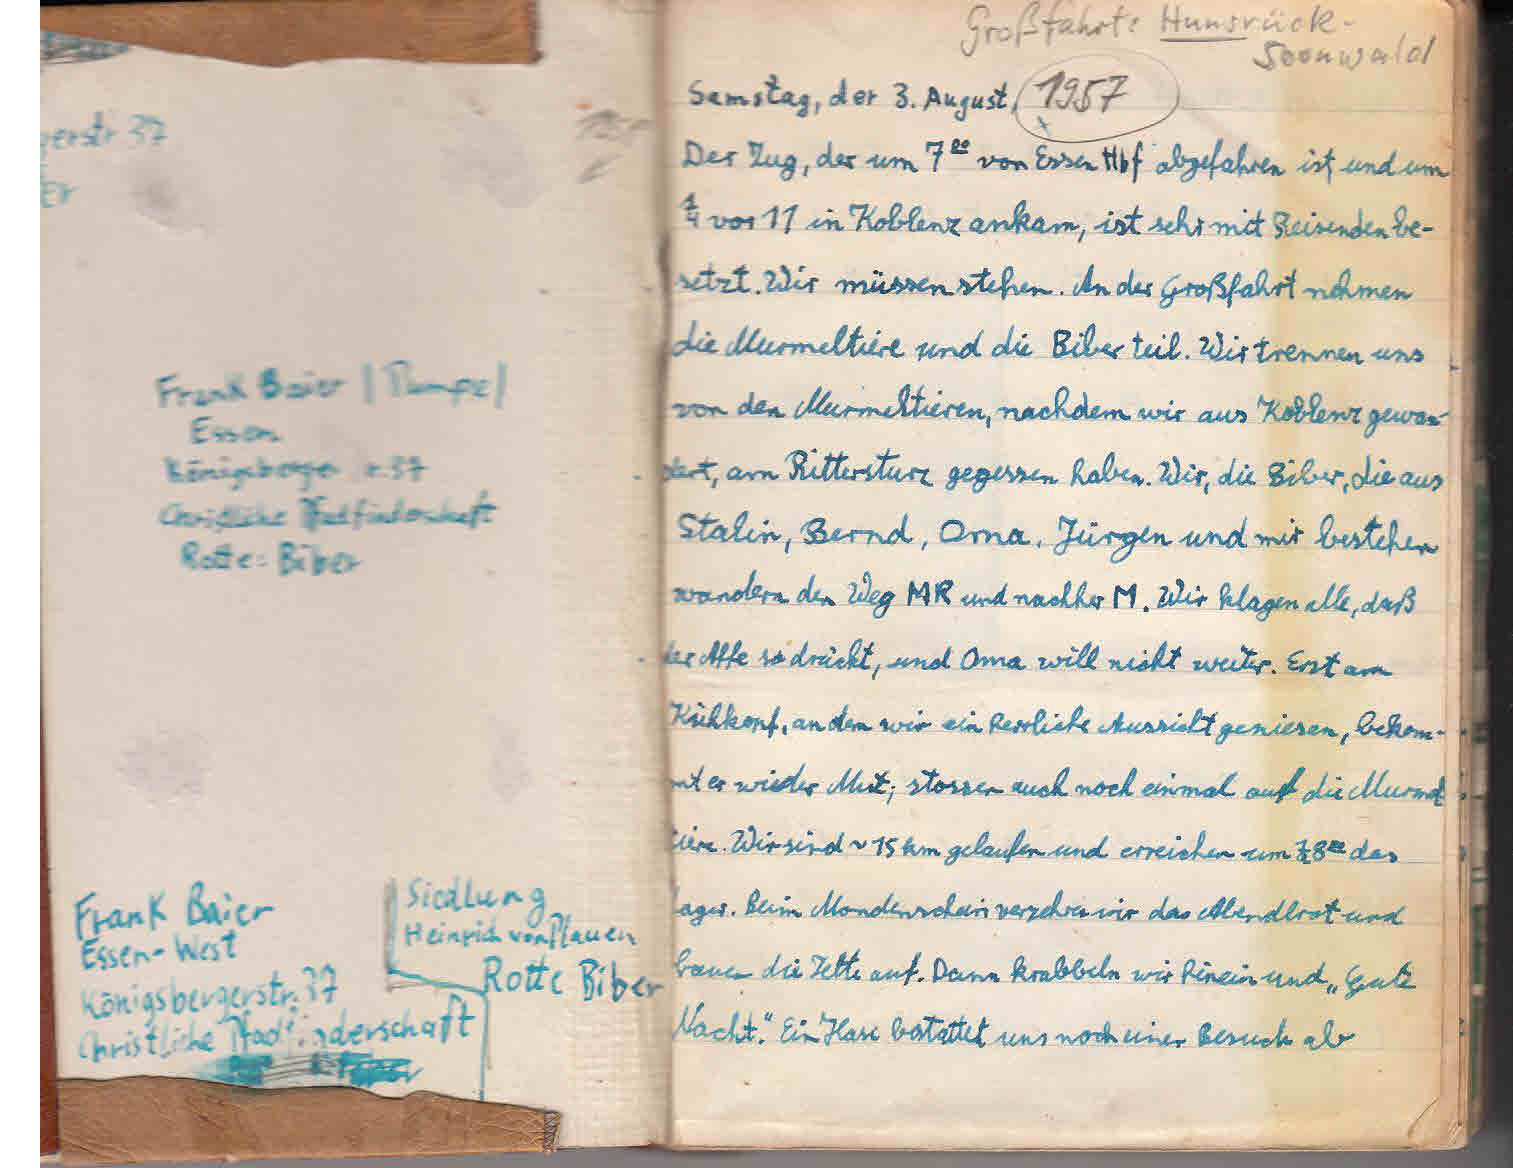 gerstr 37
er
Frank Baier | Plumpe |
Essen
Königsberger r. 37
Christliche Pfadfinderschaft
Rotte: Biber
Frank Baier
Essen-West
Königsbergerstr. 37
Christliche Pfadfinderschaft
Siedlung
Heinrich von Plauen
Rotte Biber
Großfahrt: Hunsrück-
Soonwald
Samstag, der 3. August, 1957
Der Zug, der um 7⁰⁰ von Essen Hbf abgefahren ist und um
1/4 vor 11 in Koblenz ankam, ist sehr mit Reisenden be-
setzt. Wir müssen stehen. An der Großfahrt nehmen
die Murmeltiere und die Biber teil. Wir trennen uns
von den Murmeltieren, nachdem wir aus Koblenz gewan-
dert, am Rittersturz gegessen haben. Wir, die Biber, die aus
Stalin, Bernd, Oma, Jürgen und mir bestehen
wandern den Weg MR und nachher M. Wir klagen alle, daß
der Affe so drückt, und Oma will nicht weiter. Erst am
Kühkopf, an dem wir ein herrliche Aussicht geniesen, bekom-
mt er wieder Mut; stossen auch noch einmal auf die Murmel
tiere. Wir sind ~ 15 km gelaufen und erreichen um 1/2 8⁰⁰ das
lager. Beim Mondenschein verzehren wir das Abendbrot und
bauen die Zelte auf. Dann krabbeln wir hinein und „Gute
Nacht." Ein Hase bestattet uns noch einen Besuch ab